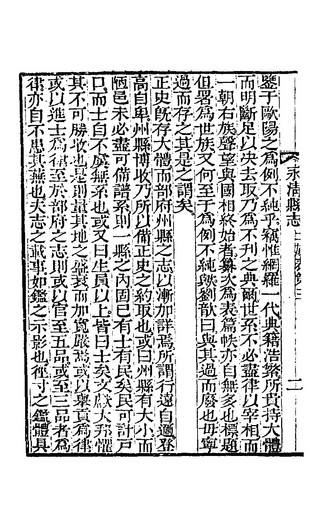 永清縣志 士族表第三 二
鑒于歐陽之為例不純乎竊惟網羅一代典籍浩繁所貴持大體
而明斷足以決去取乃為不刊之典爾世系不必盡律以宰相而
一朝右族聲望與國相終始者纂次為表篇帙亦自無多也標題
但署為世族又何至于為例不純歟劉歆曰與其過而廢也毋寧
過而存之其是之謂矣
正史旣存大體而部府州縣之志以漸加詳焉所謂行遠自邇登
高自卑州縣博收乃所以備正史之約取也或曰州縣有大小而
陋邑未必盡可備譜系則一縣之內固已有士有民矣民可計戶
口而士自不虞無系也或又曰生員以上皆曰士矣文獻大邦懼
其不可勝收也是則量其地之盛衰而加寬嚴焉或以舉貢為律
或以進士為律至於部府之志則或以官至五品或至三品者為
律亦自不患其蕪也夫志之載事如鑑之示影也徑寸之鑑體具